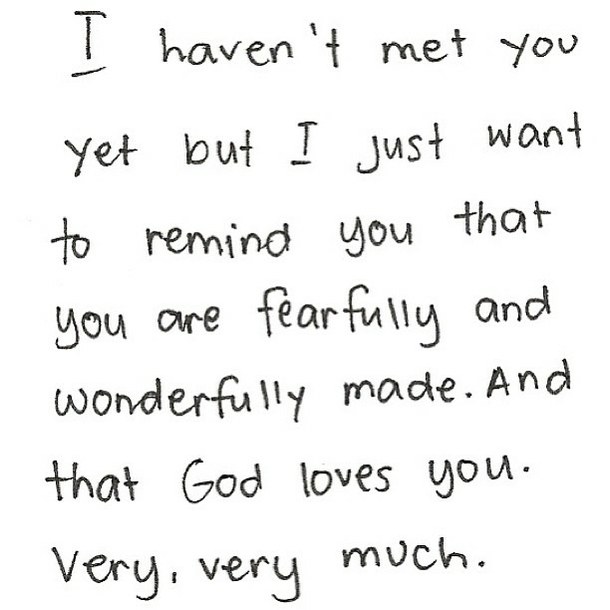 I haven't met you
yet but I just want
to remind you that
you are fearfully and
wonderfully made. And
that God loves you.
Very, very much.